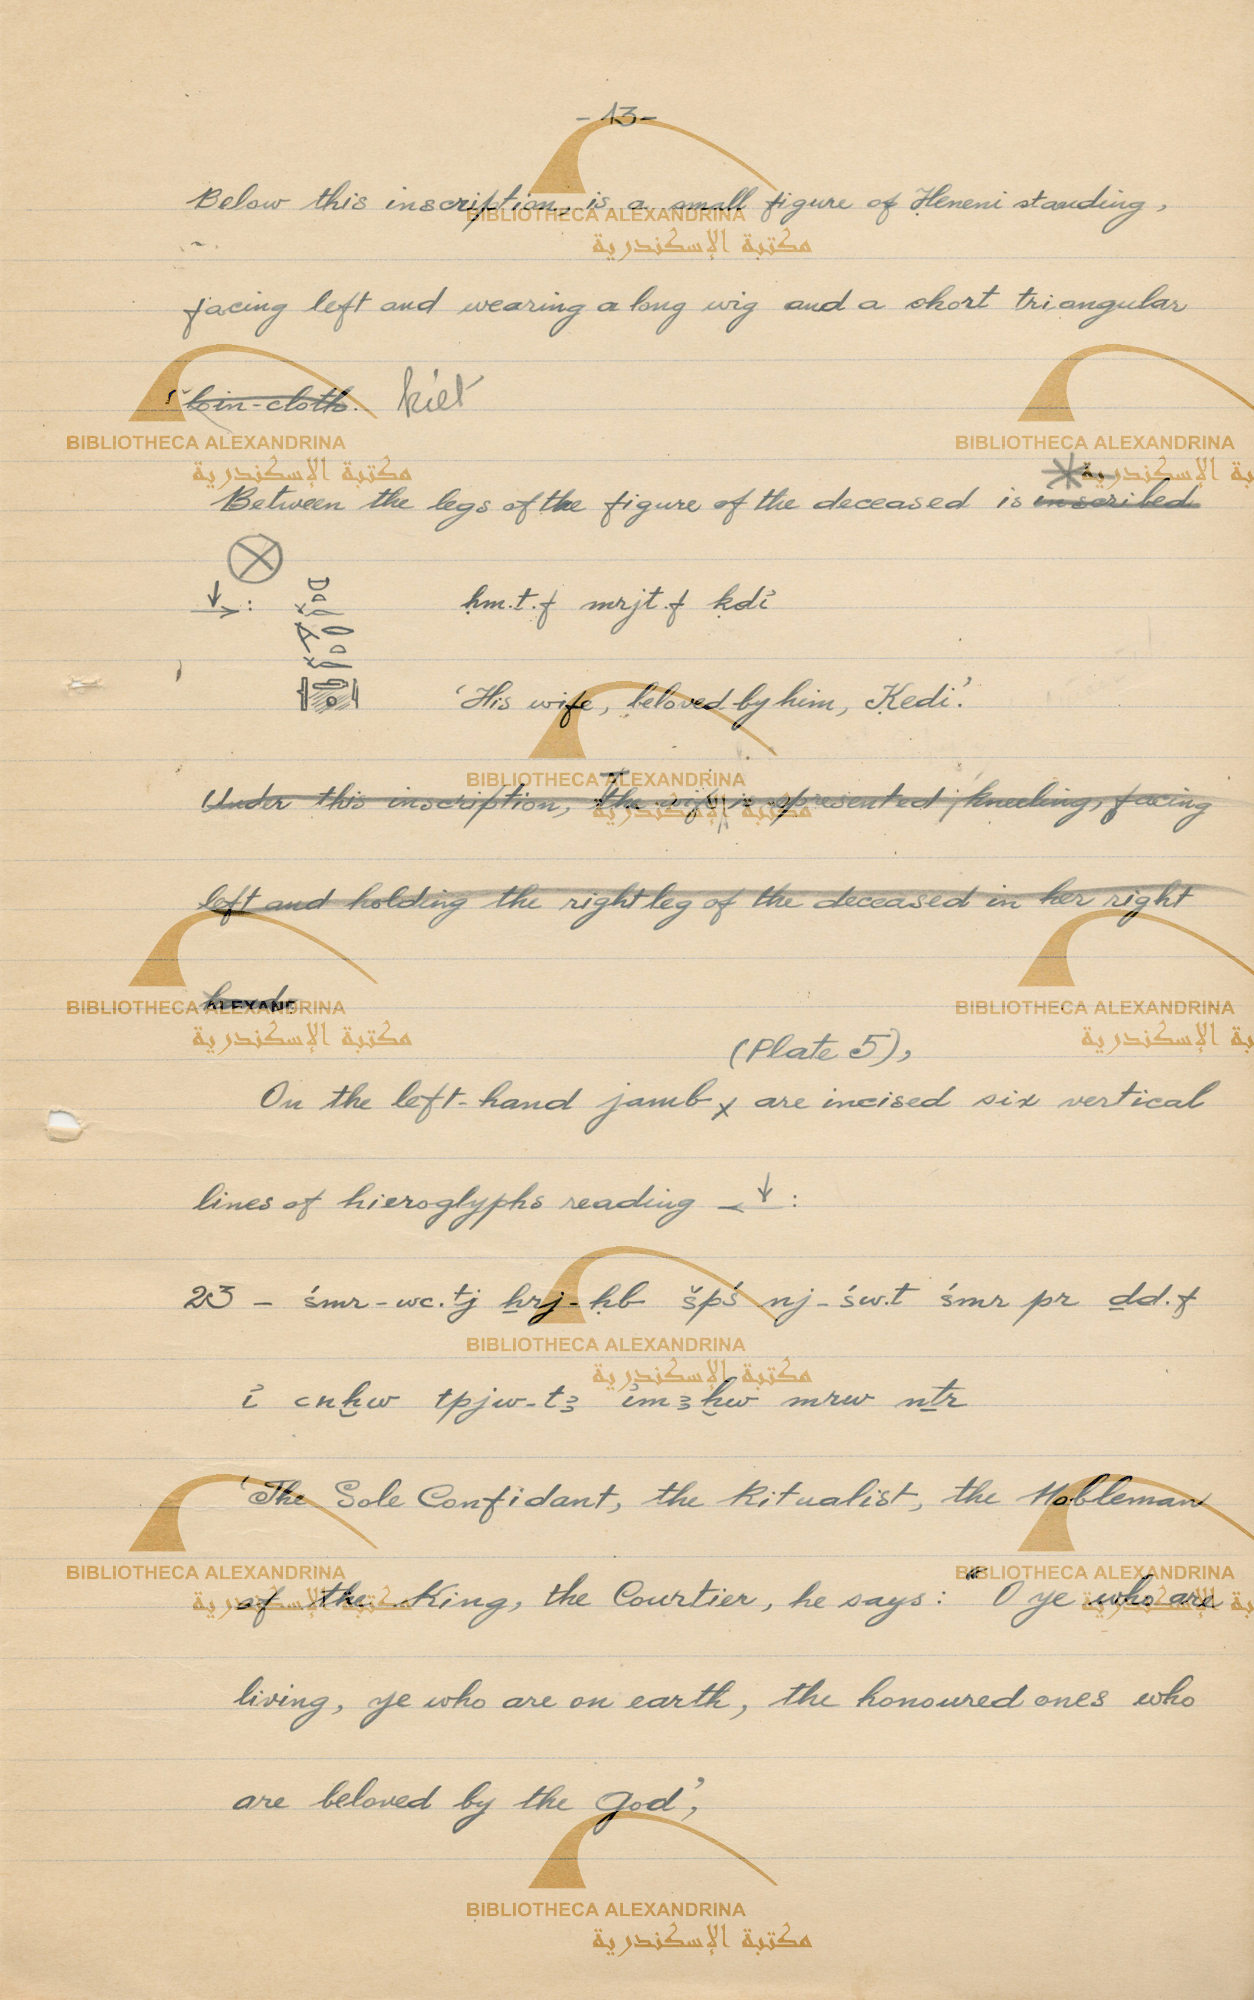 - 13 -
Below this inscription, is a small figure of Ḥeneni standing,
facing left and wearing a long wig and a short triangular
loin-cloth. kilt
Between the legs of the figure of the deceased is inscribed
ḥm.t.f mrjt.f ḳdỉ
‘His wife, beloved by him, Ḳedi’.
Under this inscription, The wife is represented kneeling, facing
left and holding the right leg of the deceased in her right
hand.
(Plate 5),
On the left-hand jamb x are incised six vertical
lines of hieroglyphs reading :
23 – śmr-wc.tj ẖrj-ḥb špś nj-św.t śmr pr ḏd.f
ỉ cnḫw tpjw-tꜣ ỉmꜣḫw mrw nṯr
‘The Sole Confidant, the Ritualist, the Nobleman
of the King, the Courtier, he says: “O ye who are
living, ye who are on earth, the honoured ones who
are beloved by the god’,
BIBLIOTHECA ALEXANDRINA
مكتبة الإسكندرية